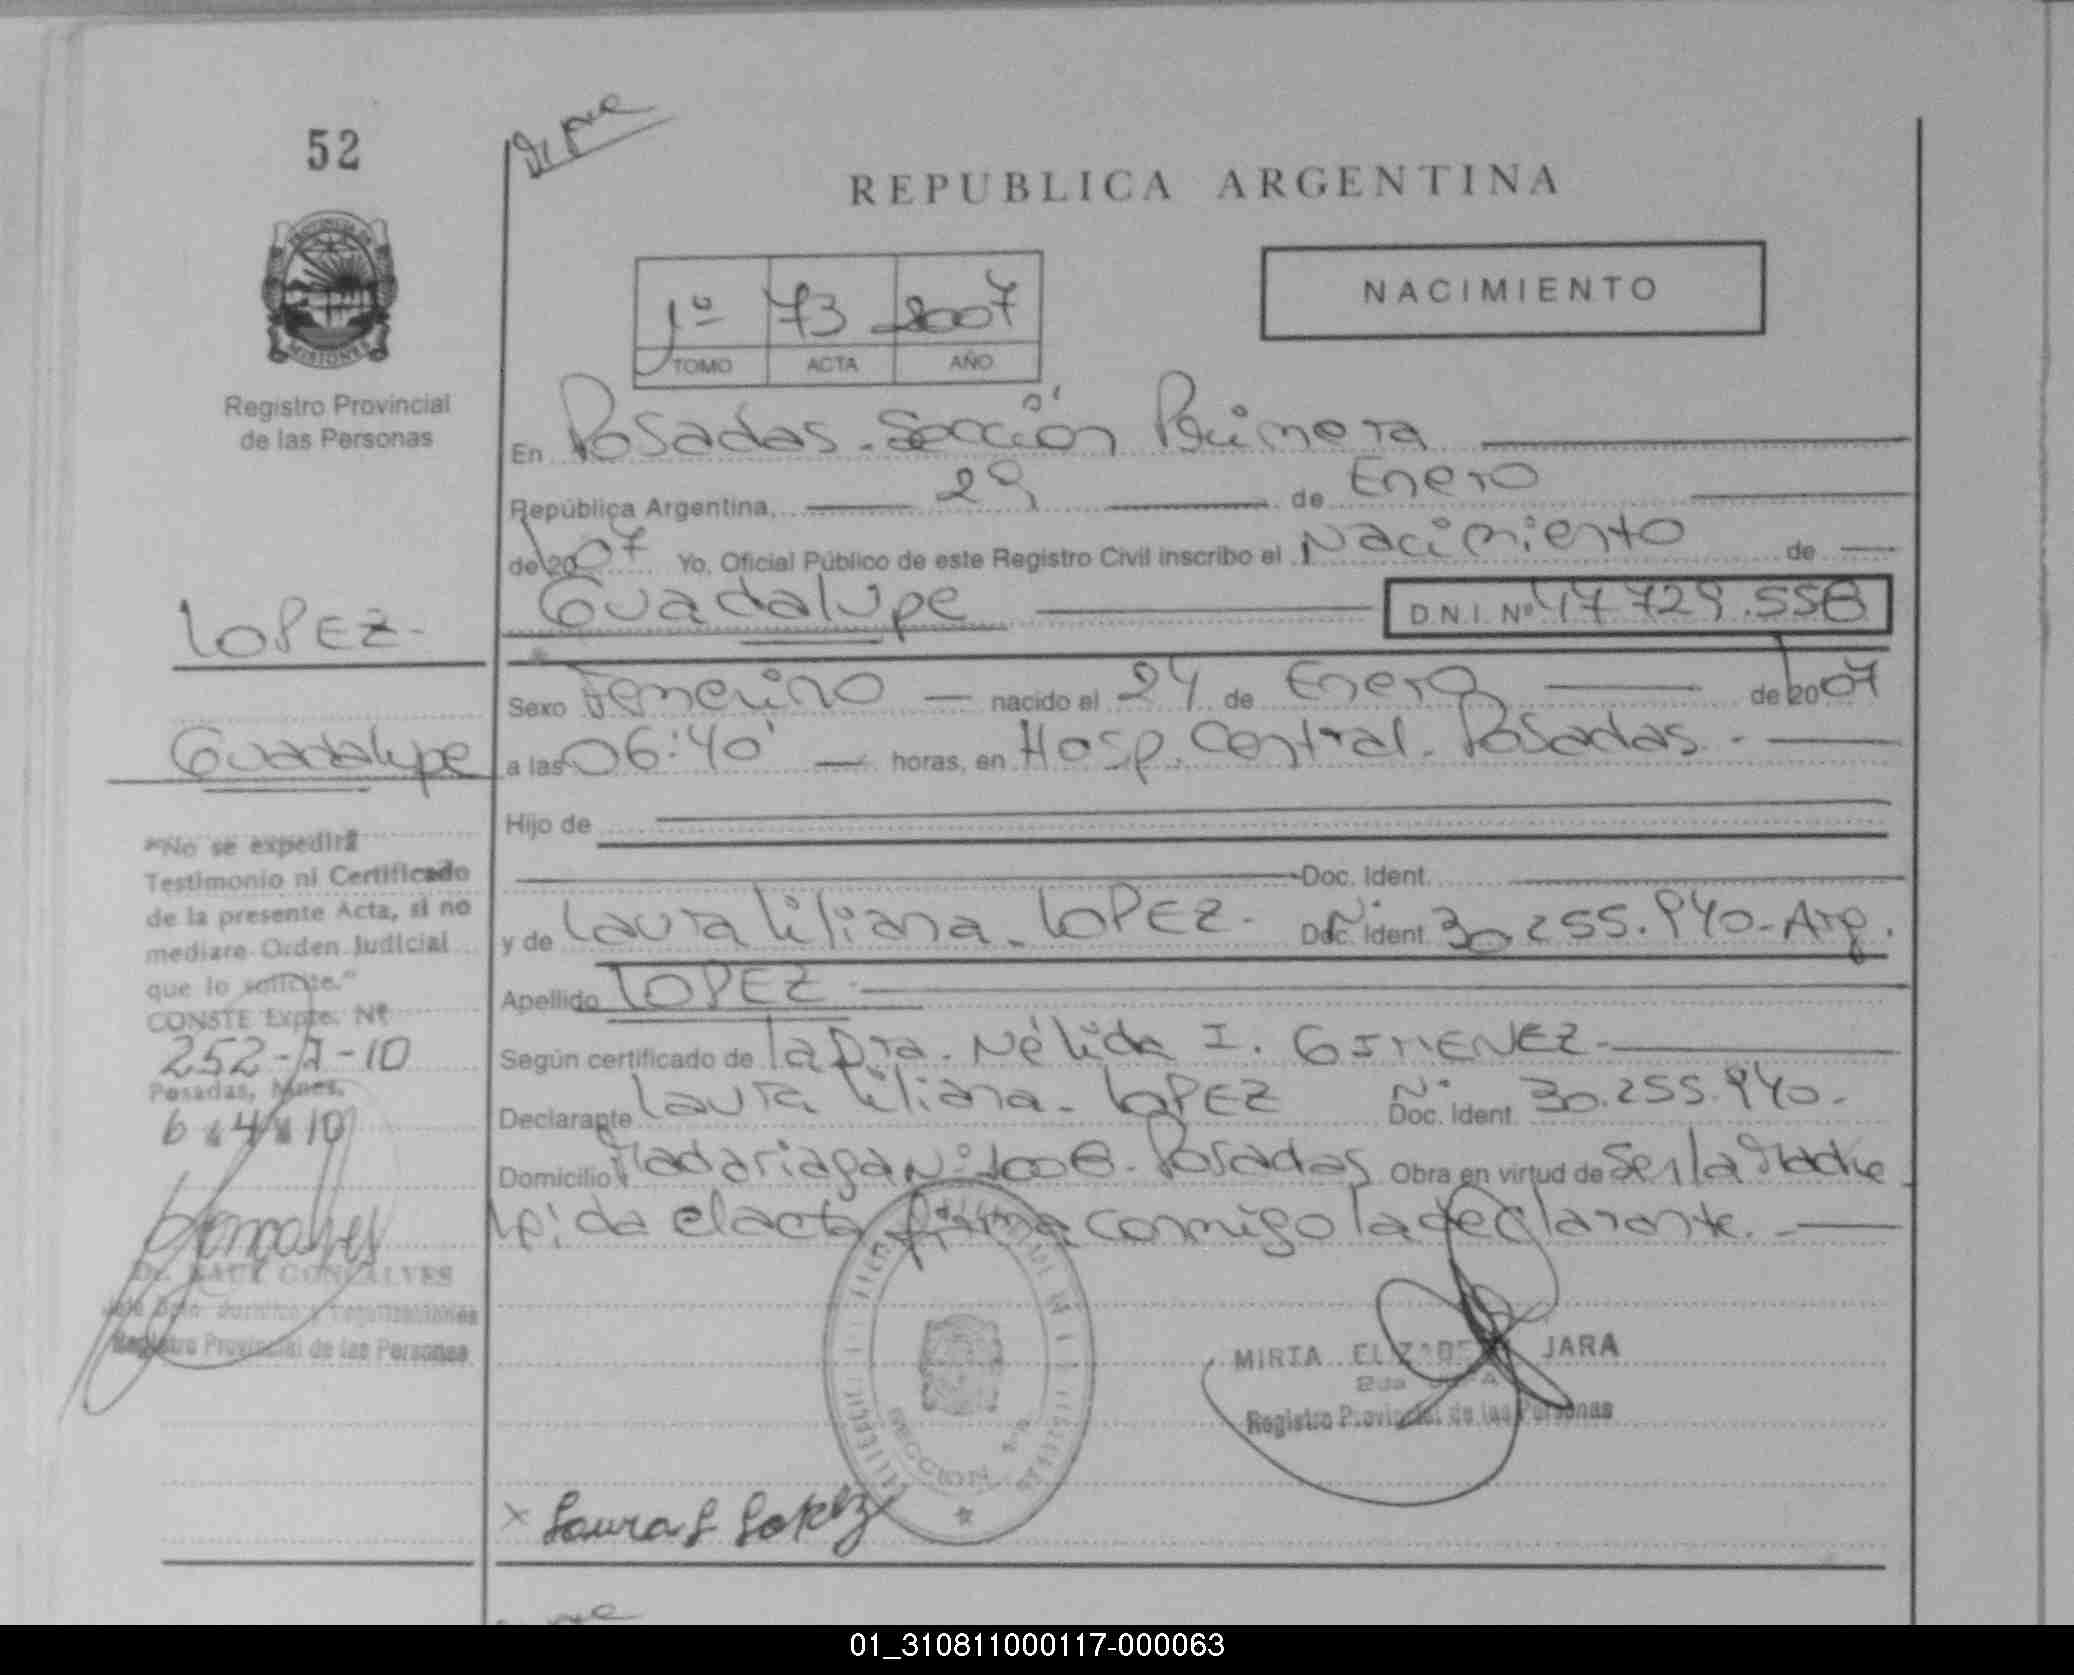 52
REPUBLICA ARGENTINA
PROVINCIA DE
MISIONES
Registro Provincial
de las Personas
NACIMIENTO
1º 73 2007
TOMO ACTA AÑO
En Posadas. Sección Primera
República Argentina, 29 de Enero
de 2007 Yo, Oficial Público de este Registro Civil inscribo el Nacimiento de
Guadalupe D.N.I. Nº 47 729.558
LOPEZ.
Guadalupe
Sexo Femenino nacido el 24 de Enero de 2007
a las 06:40' horas, en Hosp. Central. Posadas.
Hijo de
Doc. Ident.
y de Laura Liliana. LOPEZ. Doc. Ident. Nº 30.255.940-Arg.
Apellido LOPEZ
Según certificado de la Dra. Nélida I. GIMENEZ.
Declarante Laura Liliana. LOPEZ Doc. Ident. Nº 30.255.940.
Domicilio Madariaga Nº 1008. Posadas Obra en virtud de Ser la Madre
Leida el acta firma conmigo la declarante.
"No se expedirá
Testimonio ni Certificado
de la presente Acta, si no
mediare Orden Judicial
que lo solicite."
CONSTE Expte. Nº
252-A-10
Posadas, Mnes.
6 4 10
GONCALVES
Registro Provincial de las Personas
MIRTA ELIZABETH JARA
Registro Provincial de las Personas
SECCION 1ra
x Laura L Lopez
01_310811000117-000063